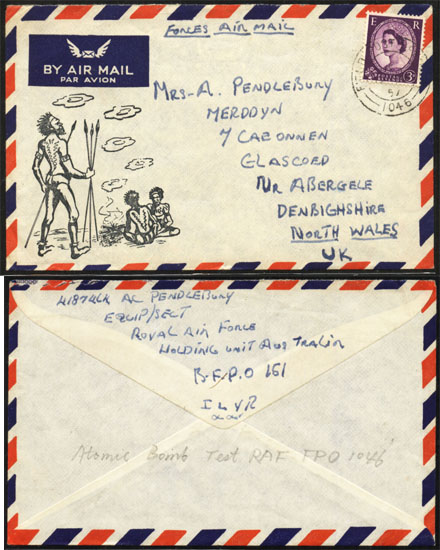 FORCES AIR MAIL
BY AIR MAIL
PAR AVION
E R
3D
57
1046
MRS. A. PENDLEBURY
MERDDYN
7 CAE ONNEN
GLASCOED
NR ABERGELE
DENBIGHSHIRE
NORTH WALES
UK
AC PENDLEBURY
EQUIP/SECT
ROYAL AIR FORCE
HOLDING UNIT AUSTRALIA
B.F.P.O 161
I L Y R
Atomic Bomb Test RAF FPO 1046